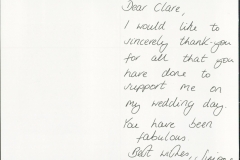 Dear Clare,
I would like to
sincerely thank-you
for all that you
have done to
support me on
my wedding day.
You have been
fabulous
Best wishes,